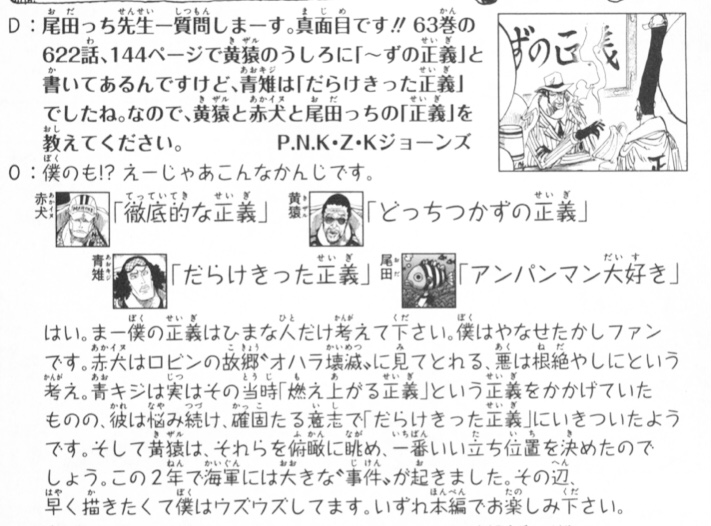 D：尾田っち先生ー質問しまーす。真面目です!! 63巻の
622話、144ページで黄猿のうしろに「〜ずの正義」と
書いてあるんですけど、青雉は「だらけきった正義」
でしたね。なので、黄猿と赤犬と尾田っちの「正義」を
教えてください。 P.N.K・Z・Kジョーンズ
ずの正義
正
O：僕のも!? えーじゃあこんなかんじです。
赤犬「徹底的な正義」 黄猿「どっちつかずの正義」
青雉「だらけきった正義」 尾田「アンパンマン大好き」
はい。まー僕の正義はひまな人だけ考えて下さい。僕はやなせたかしファン
です。赤犬はロビンの故郷〝オハラ壊滅〟に見てとれる、悪は根絶やしにという
考え。青キジは実はその当時「燃え上がる正義」という正義をかかげていた
ものの、彼は悩み続け、確固たる意志で「だらけきった正義」にいきついたよう
です。そして黄猿は、それらを俯瞰に眺め、一番いい立ち位置を決めたので
しょう。この2年で海軍には大きな〝事件〟が起きました。その辺、
早く描きたくて僕はウズウズしてます。いずれ本編でお楽しみ下さい。